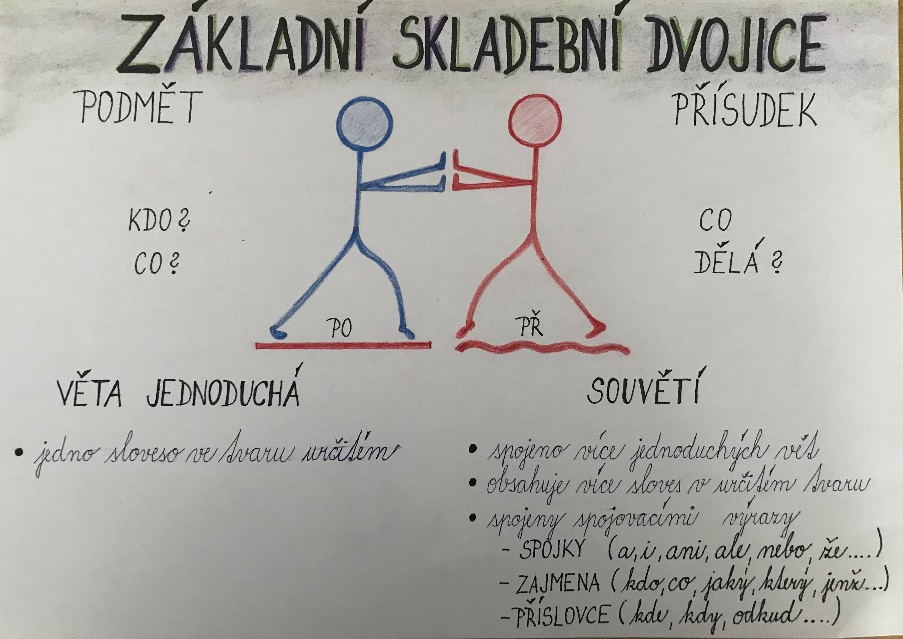 ZÁKLADNÍ SKLADEBNÍ DVOJICE
PODMĚT
PŘÍSUDEK
KDO?
CO?
CO
DĚLÁ?
PO
PŘ
VĚTA JEDNODUCHÁ
• jedno sloveso ve tvaru určitém
SOUVĚTÍ
• spojeno více jednoduchých vět
• obsahuje více sloves v určitém tvaru
• spojeny spojovacími výrazy
- SPOJKY (a, i, ani, ale, nebo, že....)
- ZAJMENA (kdo, co, jaký, který, jenž...)
- PŘÍSLOVCE (kde, kdy, odkud....)